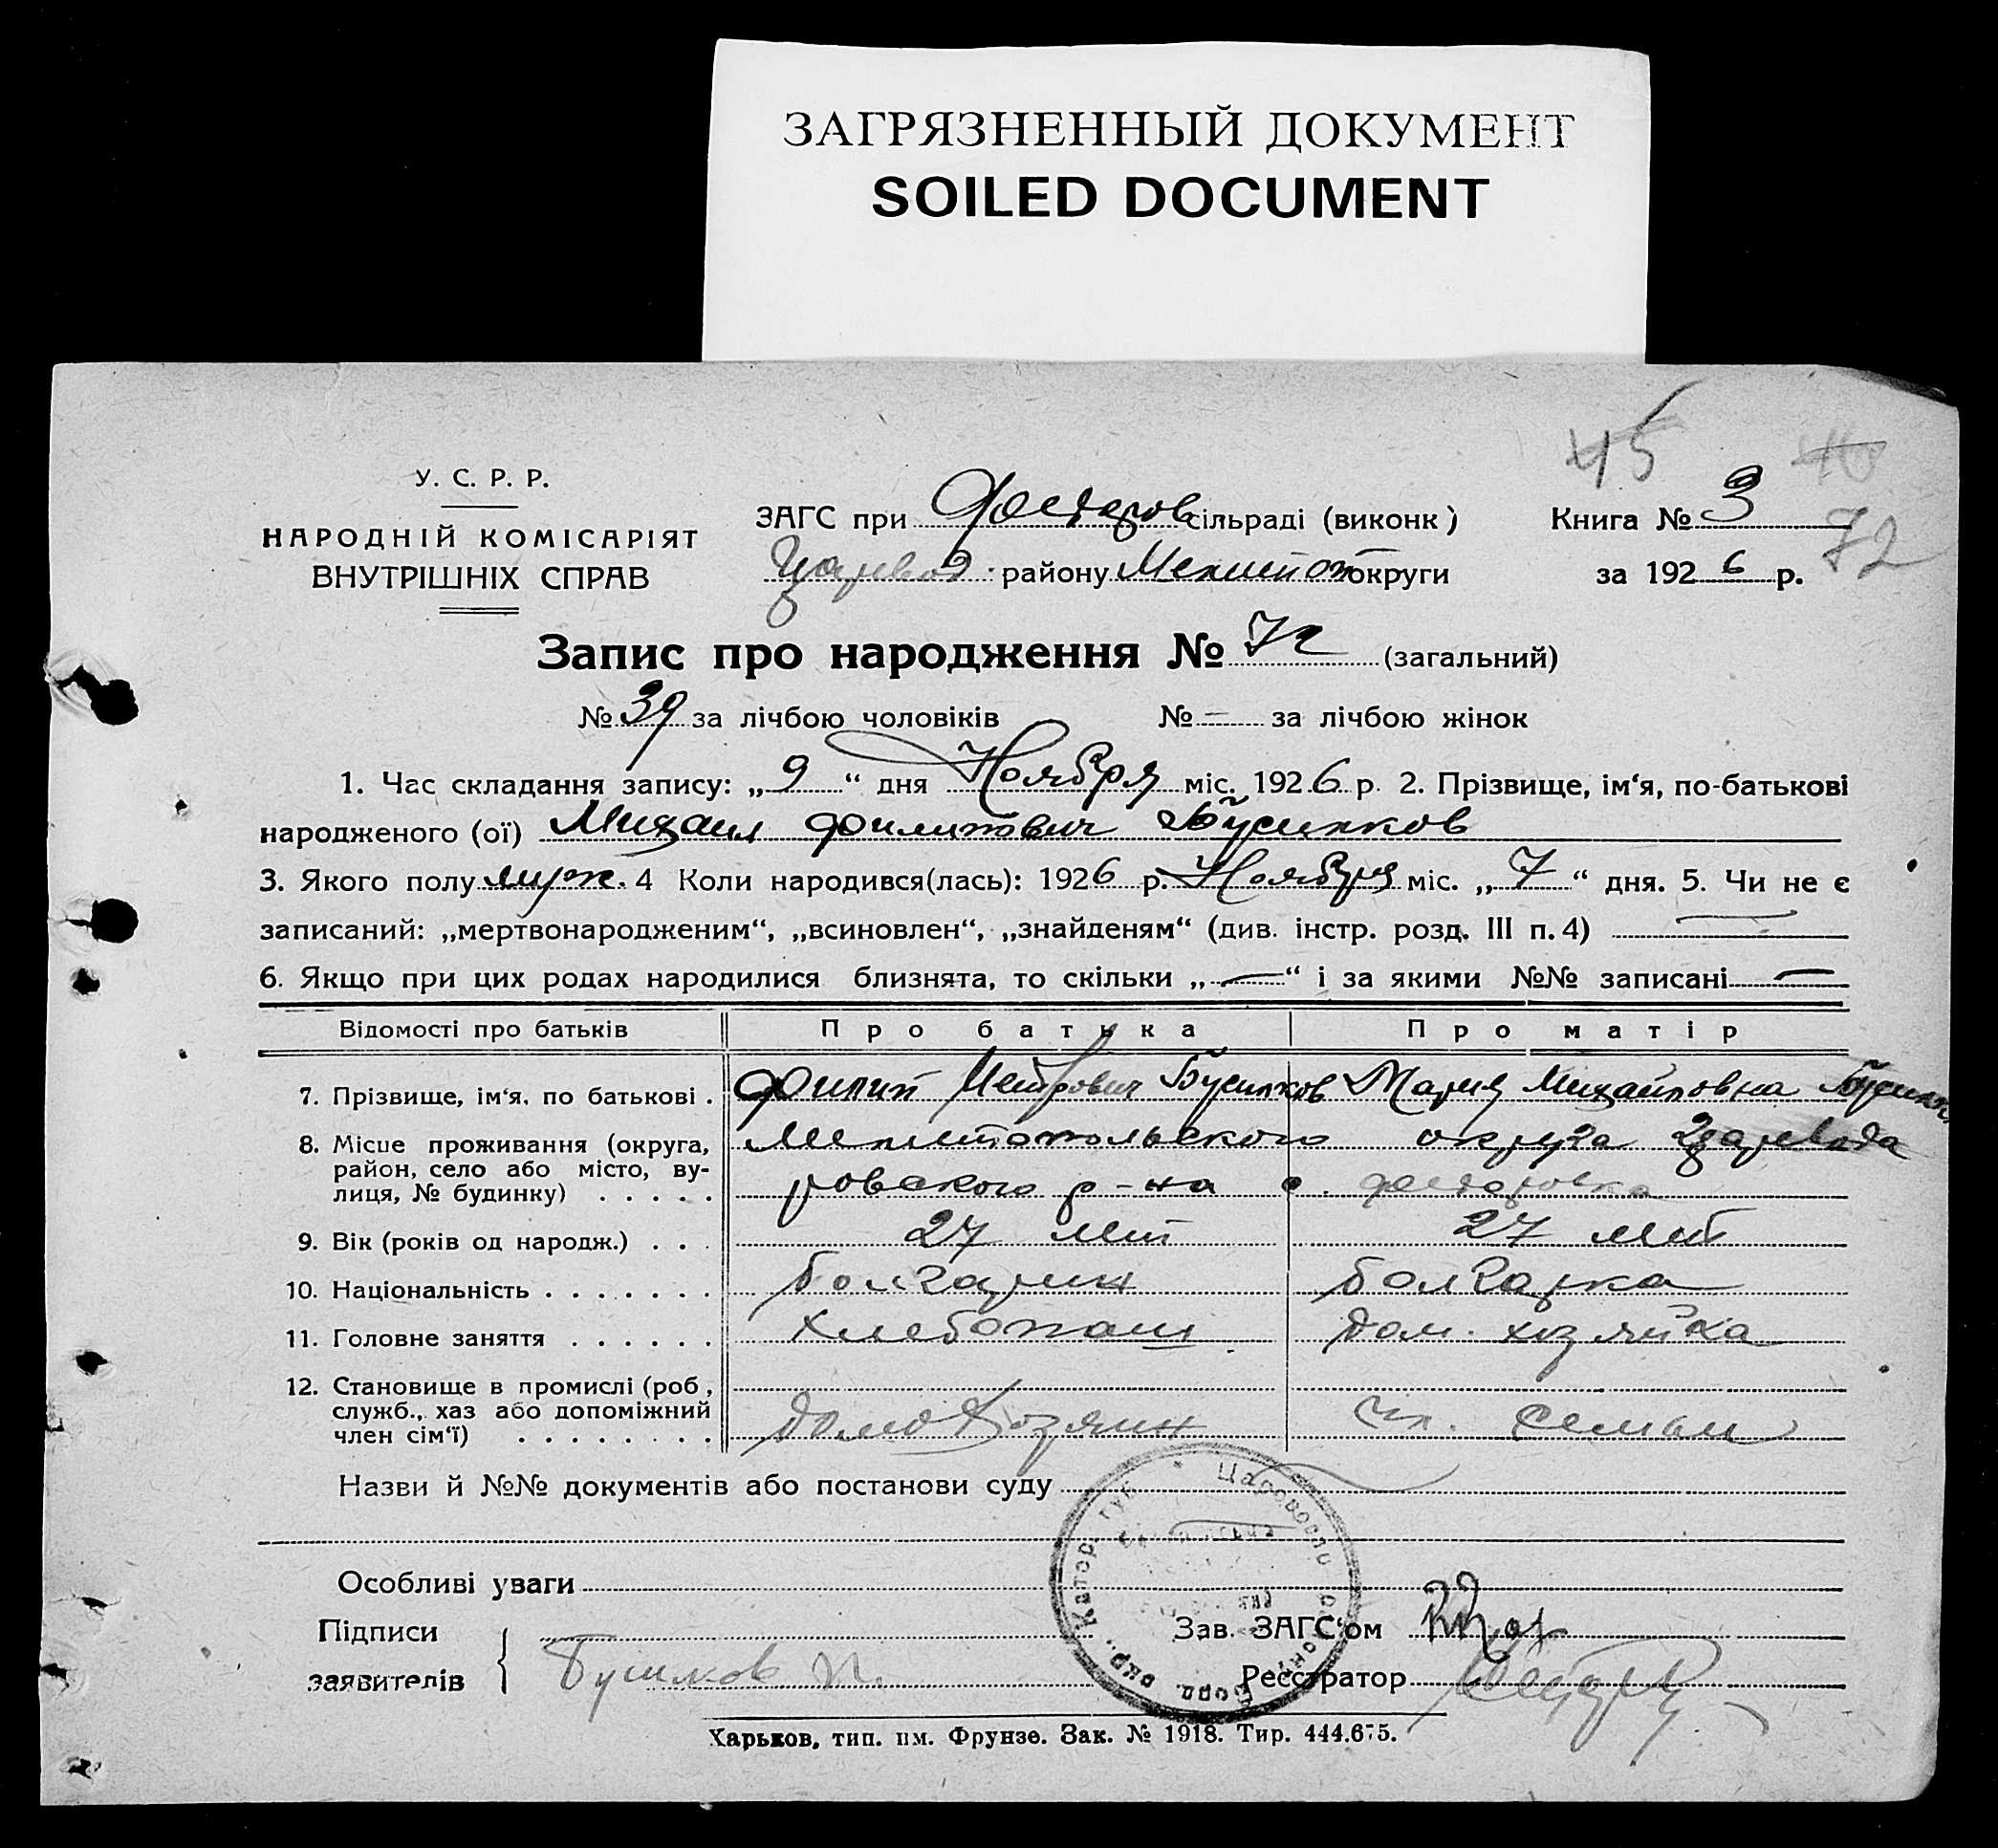 ЗАГРЯЗНЕННЫЙ ДОКУМЕНТ
SOILED DOCUMENT
45
У. С. Р. Р.
НАРОДНІЙ КОМІСАРІЯТ
ВНУТРІШНІХ СПРАВ
ЗАГС при Федоров сільраді (виконк)
Царевод району Мелитоп округи
Книга № 3
72
за 1926 р.
Запис про народження № 72 (загальний)
№ 39 за лічбою чоловіків № — за лічбою жінок
1. Час складання запису: „9“ дня Ноября міс. 1926 р. 2. Прізвище, ім‘я, по-батькові
народженого (ої) Михаил Филипович Бусилков
3. Якого полу муж. 4 Коли народився(лась): 1926 р. Ноября міс. „7“ дня. 5. Чи не є
записаний: „мертвонародженим“, „всиновлен“, „знайденям“ (див. інстр. розд. III п. 4) —
6. Якщо при цих родах народилися близнята, то скільки „—“ і за якими №№ записані —
Відомості про батьків Про батька Про матір
7. Прізвище, ім‘я, по батькові . Филип Петрович Бусилков Мария Михайловна
8. Місце проживання (округа, Мелитопольского округа Царевода
район, село або місто, ву-
лиця, № будинку) . . . . . ровского р-на с. Федоровка
9. Вік (років од народж.) . . . 27 лет 27 лет
10. Національність . . . . . . . болгарин болгарка
11. Головне заняття . . . . . . Хлебопаш дом. хозяйка
12. Становище в промислі (роб,
служб., хаз або допоміжний
член сім‘ї) . . . . . . . . домохозяин чл. семьи
Назви й №№ документів або постанови суду
Особливі уваги
Підписи
заявителів
Зав. ЗАГС‘ом
Реєстратор
Харьков, тип. им. Фрунзе. Зак. № 1918. Тир. 444.675.